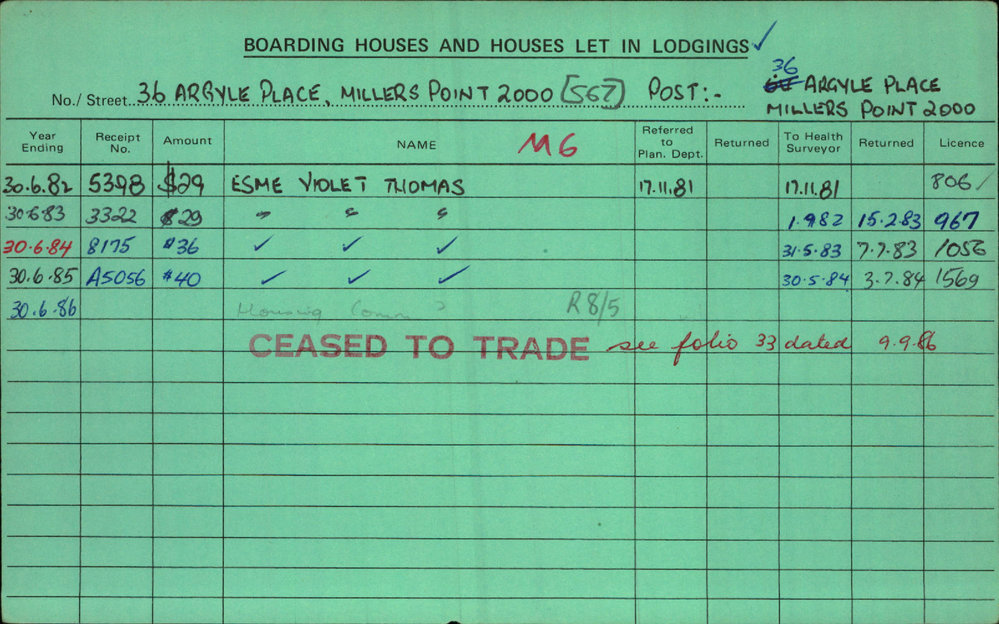 BOARDING HOUSES AND HOUSES LET IN LODGINGS ✓
No./ Street 36 ARGYLE PLACE, MILLERS POINT 2000 [567] POST:- 36 ARGYLE PLACE
MILLERS POINT 2000
Year Ending Receipt No. Amount NAME M6 Referred to Plan. Dept. Returned To Health Surveyor Returned Licence
30.6.82 5398 $29 ESME VIOLET THOMAS 17.11.81 17.11.81 806/
30.6.83 3322 $29 " " " 1.9.82 15.2.83 967
30.6.84 8175 $36 ✓ ✓ ✓ 31.5.83 7.7.83 1056
30.6.85 A5056 $40 ✓ ✓ ✓ 30.5.84 3.7.84 1569
30.6.86 Housing Comm ? R8/5
CEASED TO TRADE see folio 33 dated 9.9.86